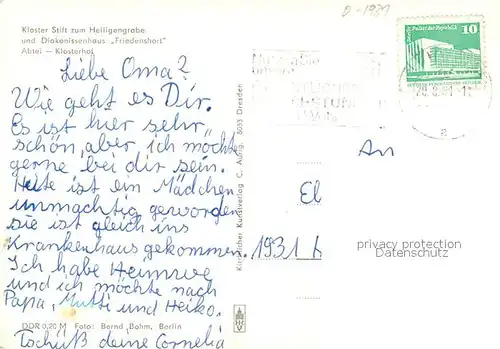 Kloster Stift zum Heiligengrabe
und Diakonissenhaus „Friedenshort"
Abtei — Klosterhof
Liebe Oma?
Wie geht es Dir.
Es ist hier sehr
schön, aber, ich möchte
gerne bei dir sein.
Heite ist ein Mädchen
unmachtig geworden
sie ist gleich ins
Krankenhaus gekommen.
Ich habe Heimwe
und ich möchte nach
Papa, Mutti und Heiko.
Tschüß deine Cornelia
DDR 0,20 M Foto: Bernd Bohm, Berlin
Kirchlicher Kunstverlag C. Aurig, 8053 Dresden
1981
Berlin, Palast der Republik
10
DDR
An
El
1931 L
privacy protection
Datenschutz